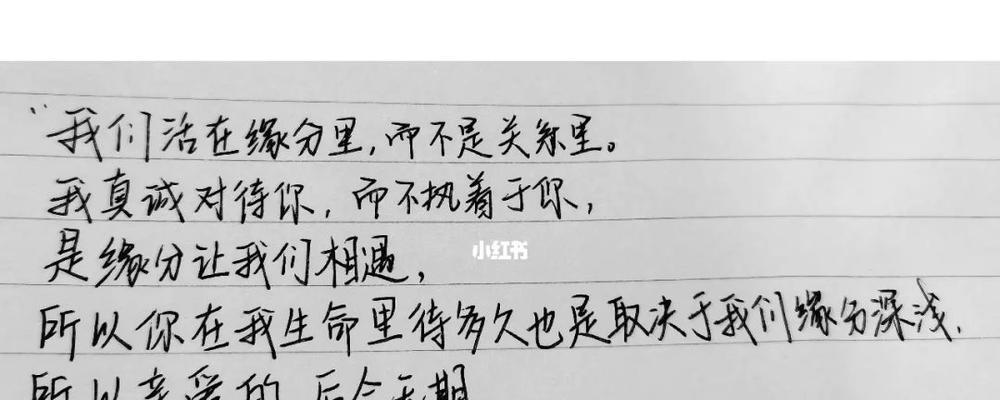 “我们活在缘分里,而不是关系里。
我真诚对待你,而不执着于你,
是缘分让我们相遇,
小红书
所以你在我生命里待多久也是取决于我们缘分深浅.
所以亲爱的 后会无期